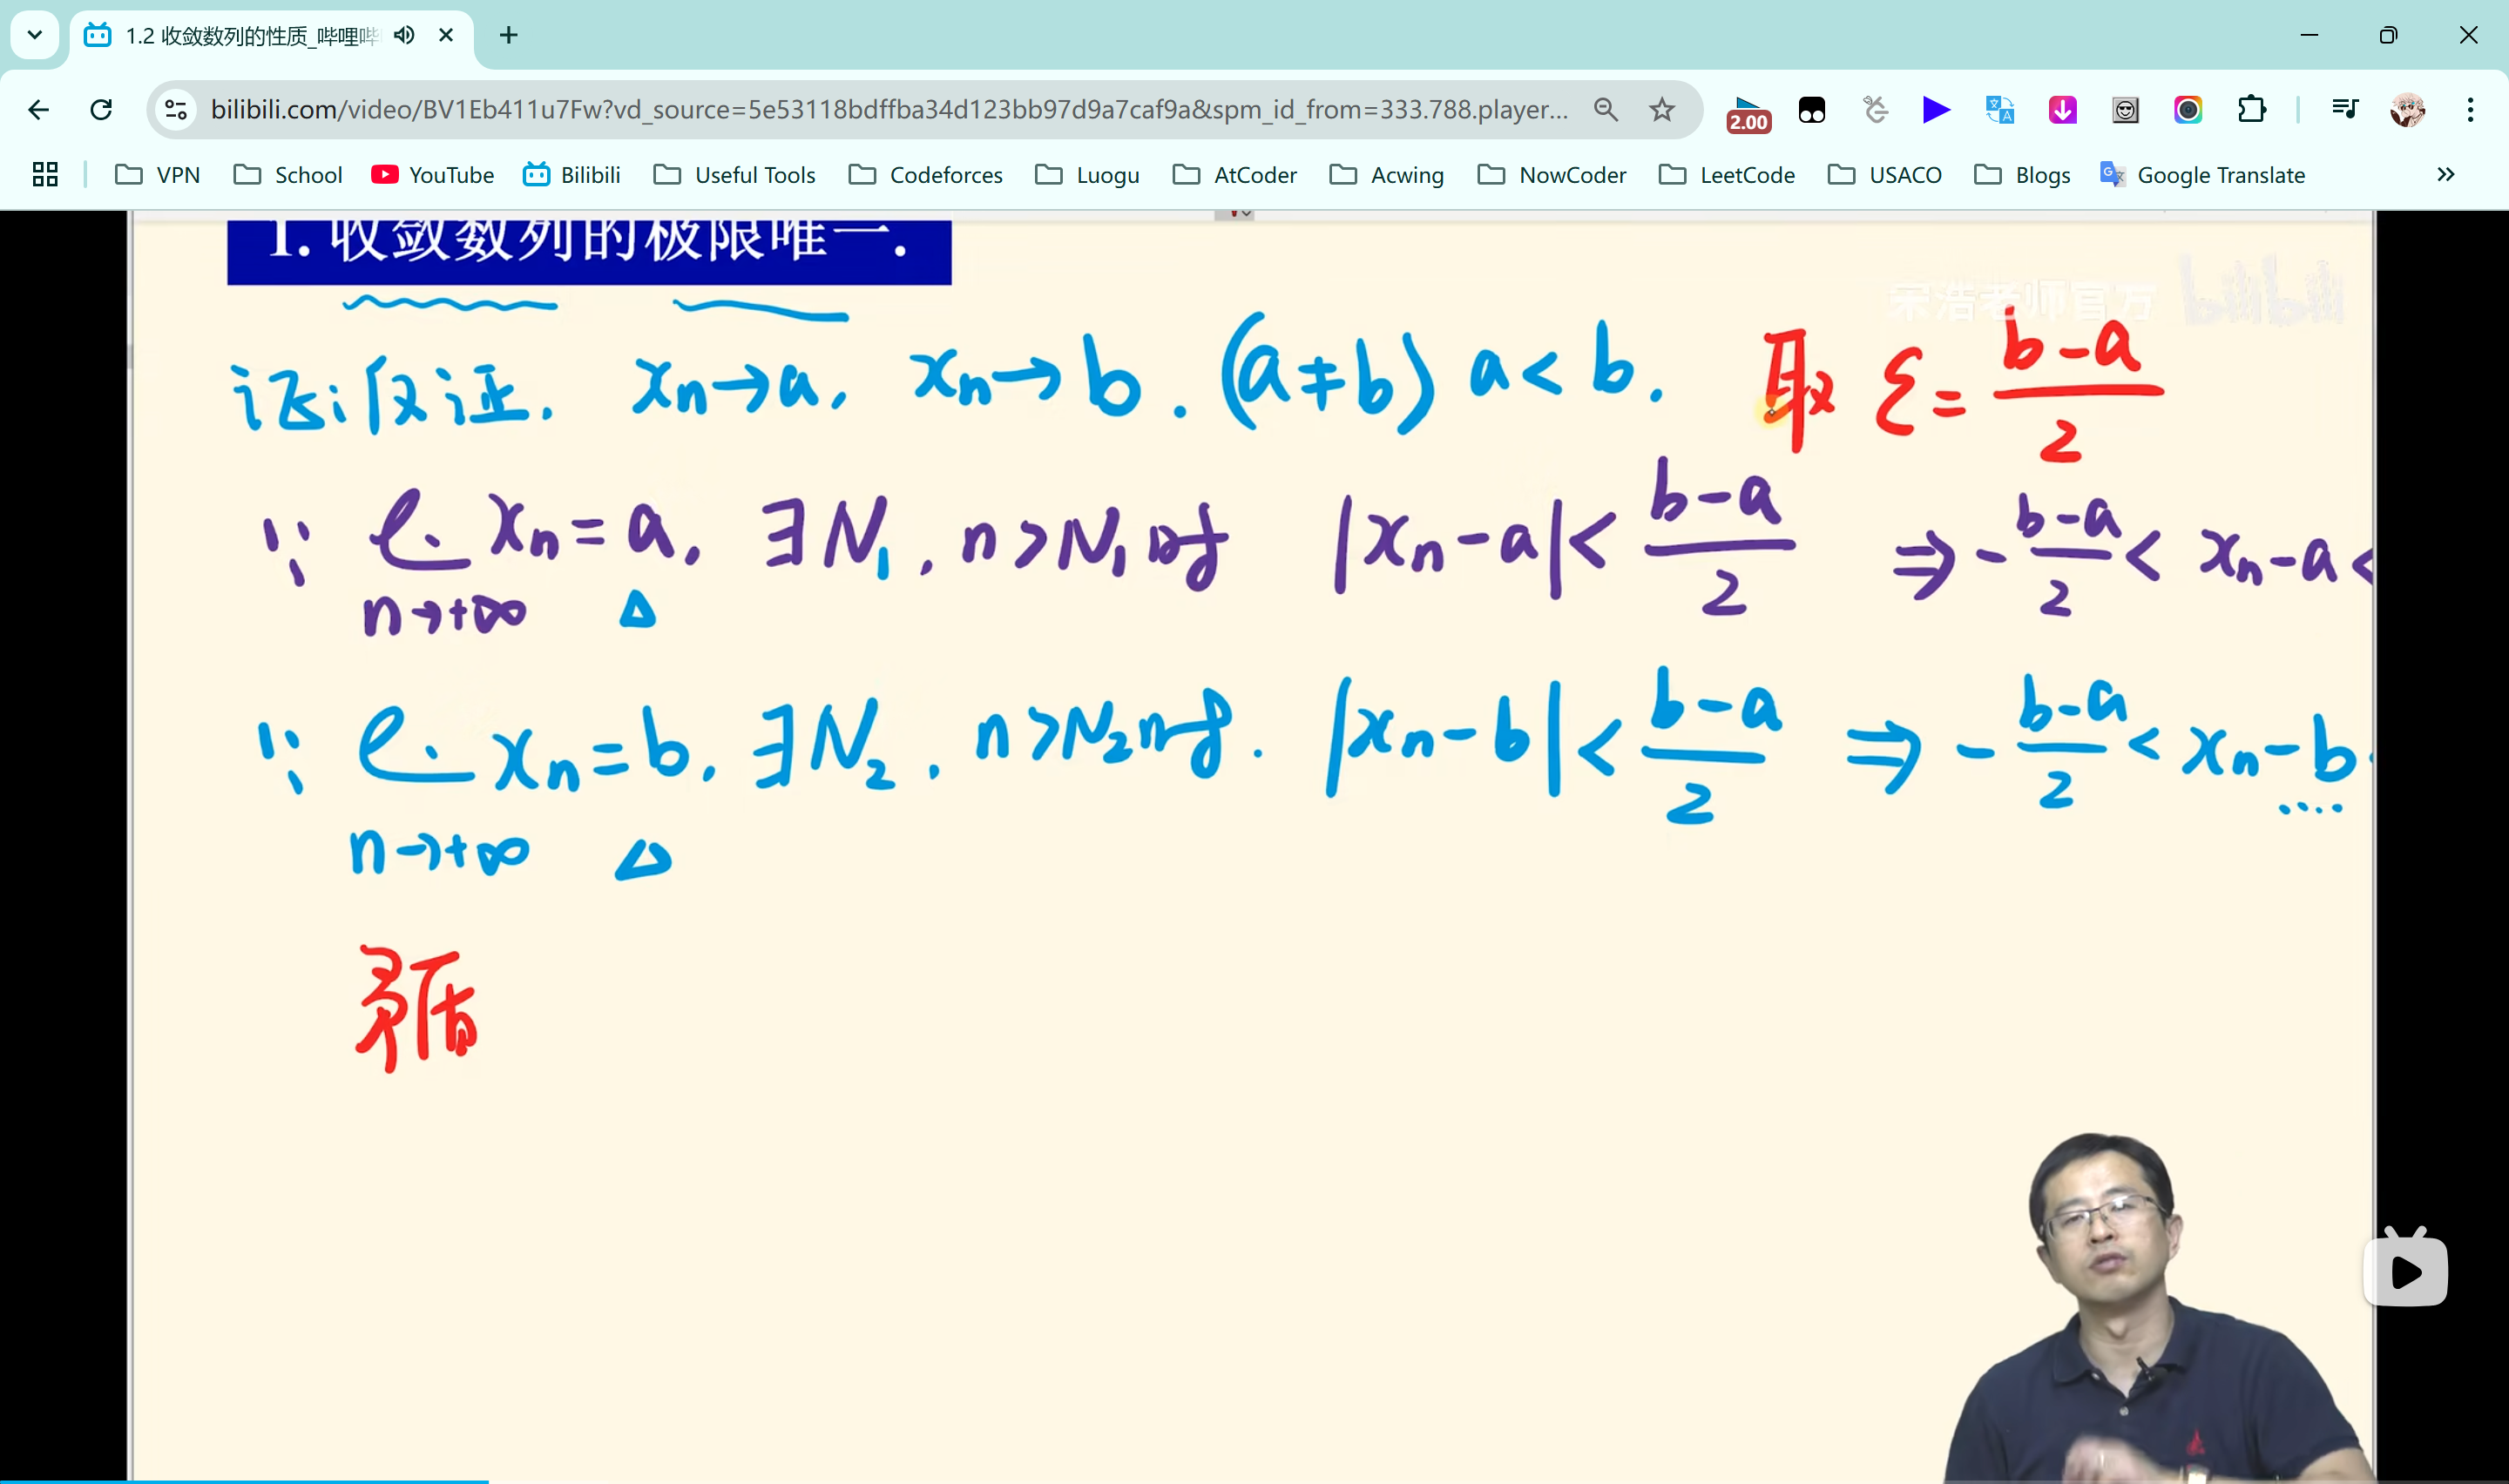 1.2 收敛数列的性质_哔哩哔
bilibili.com/video/BV1Eb411u7Fw?vd_source=5e53118bdffba34d123bb97d9a7caf9a&spm_id_from=333.788.player...
2.00
VPN School YouTube Bilibili Useful Tools Codeforces Luogu AtCoder Acwing NowCoder LeetCode USACO Blogs Google Translate
1. 收敛数列的极限唯一.
宋浩老师官方 bilibili
证: 反证. xn→a, xn→b. (a≠b) a<b. 取 ε= b-a/2
∵ lim n→+∞ xn=a, ∃N1, n>N1时 |xn-a|< b-a/2 ⇒ - b-a/2 < xn-a<
∵ lim n→+∞ xn=b, ∃N2, n>N2时. |xn-b|< b-a/2 ⇒ - b-a/2 < xn-b
矛盾